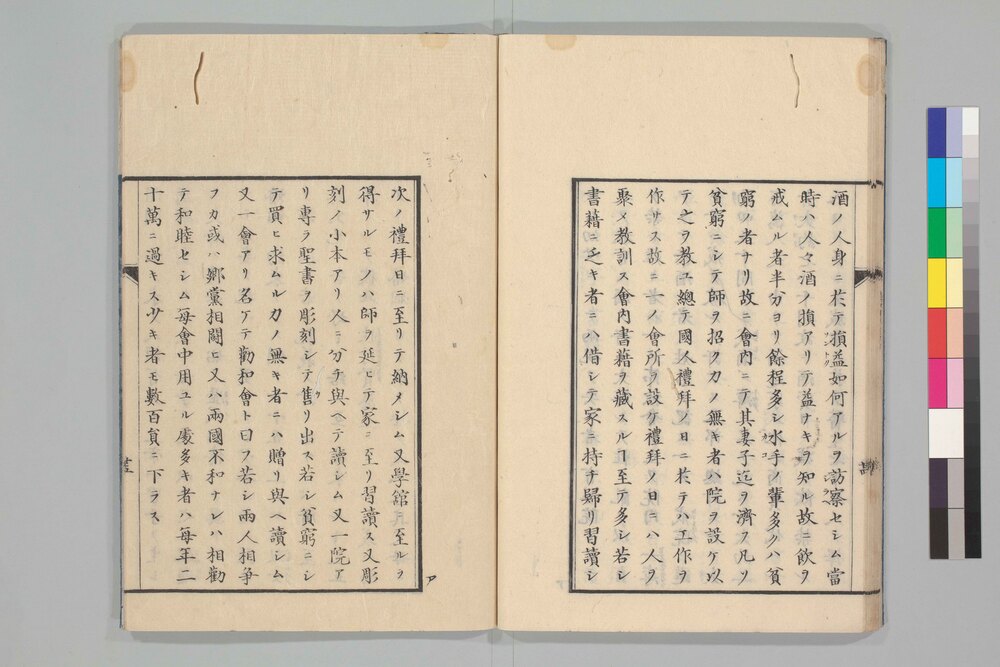 酒ノ人身ニ於テ損益如何アルヲ訪察セシム當
時ハ人々酒ノ損アリテ益ナキヲ知ル故ニ飲ヲ
戒ムル者半分ヨリ餘程多シ水手ノ輩多クハ貧
窮ノ者ナリ故ニ會内ニテ其妻子迄ヲ濟フ凡ソ
貧窮ニシテ師ヲ招クカノ無キ者ハ院ヲ設ケ以
テ之ヲ教ユ總テ國人禮拜ノ日ニ於テハ工作ヲ
作サス故ニ一ノ會所ヲ設ケ禮拜ノ日ニハ人ヲ
聚メ教訓ス會内書藉ヲ藏スルヿ至テ多シ若シ
書藉ニ乏キ者ニハ借シテ家ニ持チ歸リ習讀シ
次ノ禮拜日ニ至リテ納メシム又學舘ニ至ルヲ
得サルモノハ師ヲ延ヒテ家ニ至リ習讀ス又彫
刻ノ小本アリ人ニ分チ與ヘテ讀シム又一院ア
リ專ラ聖書ヲ彫刻シテ售リ出ス若シ貧窮ニシ
テ買ヒ求ムルカノ無キ者ニハ贈リ與ヘ讀シム
又一會アリ名ケテ勸和會ト曰フ若シ兩人相爭
フカ或ハ鄉黨相鬪ヒ又ハ兩國不和ナレハ相勸
テ和睦セシム每會中用ユル處多キ者ハ每年二
十萬ニ過キス少キ者モ數百員ニ下ラス